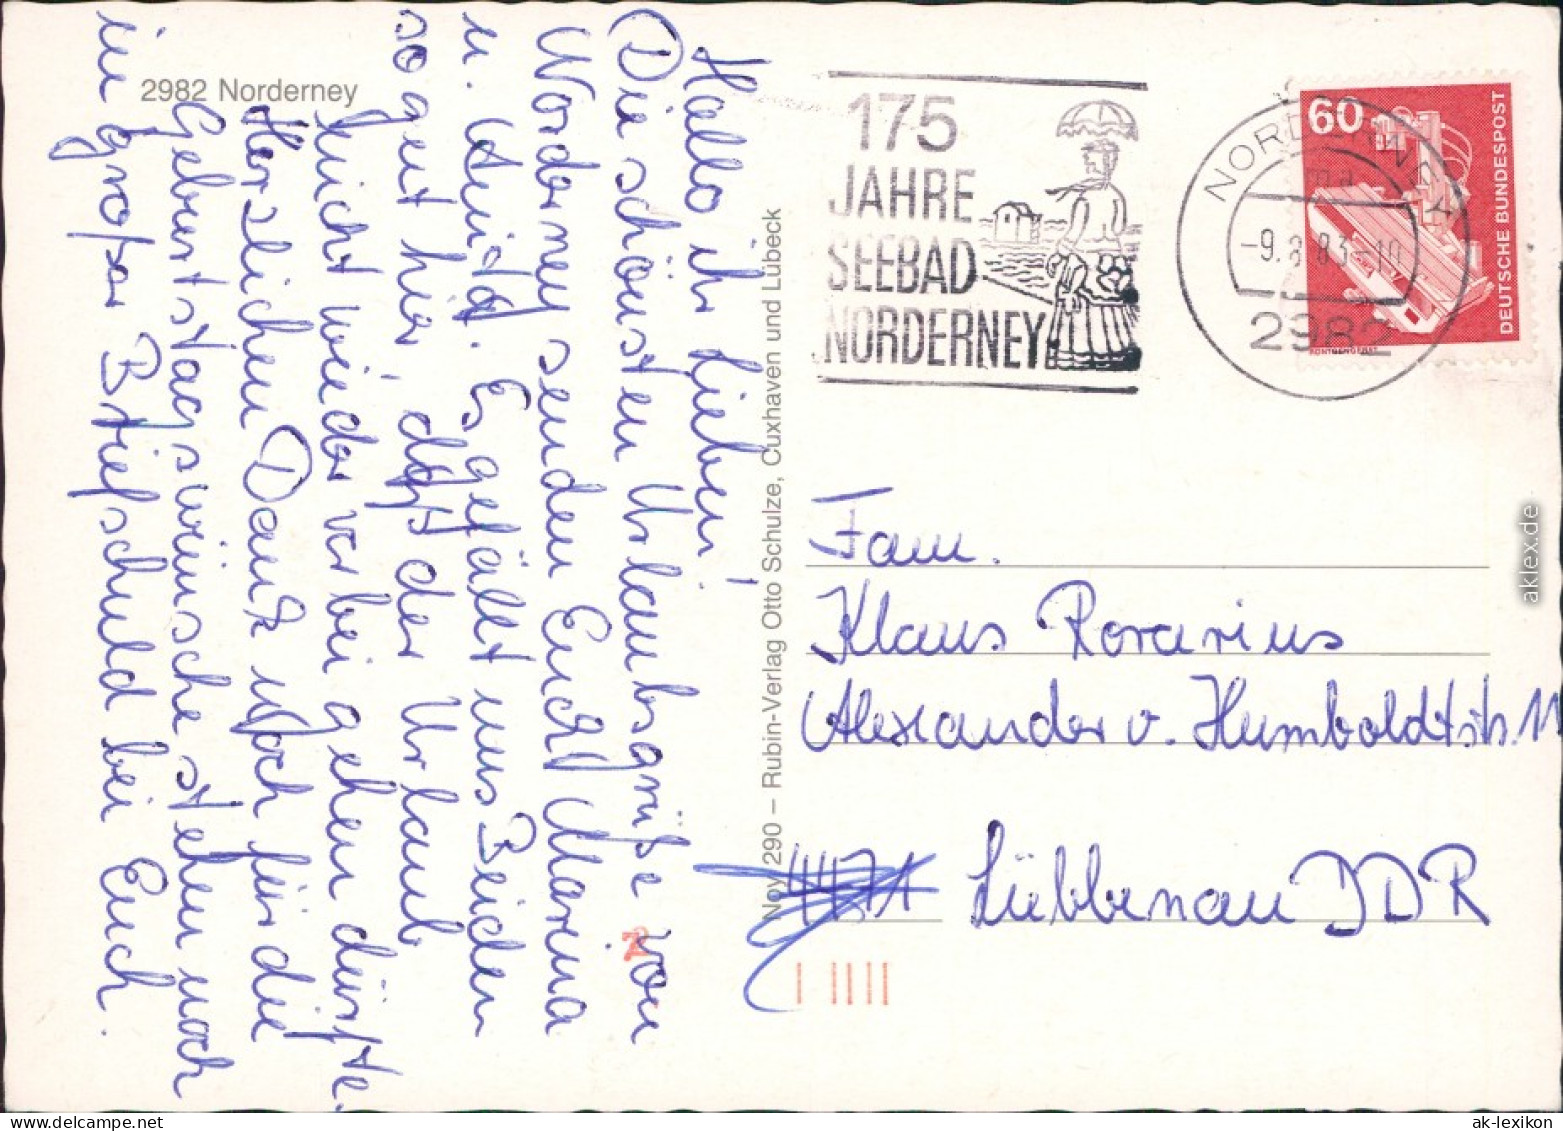 2982 Norderney
Hallo ihr Lieben!
Die schönsten Urlaubsgrüße von
Norderney senden Euch Marina
u. Anita. Es gefällt uns Beiden
so gut hier, daß der Urlaub
nicht wieder vorbei gehen dürfte.
Herzlichen Dank noch für die
Geburtstagswünsche stehen noch
in großer Briefschuld bei Euch.
Nov 290 – Rubin-Verlag Otto Schulze, Cuxhaven und Lübeck
175
JAHRE
SEEBAD
NORDERNEY
NORDERNEY
-9.8.83-10
2982
60
DEUTSCHE BUNDESPOST
RÖNTGENGERÄT
Fam.
Klaus Rorarius
Alexander v. Humboldtstr. 11
Lübbenau DDR
aklex.de
www.delcampe.net
ak-lexikon